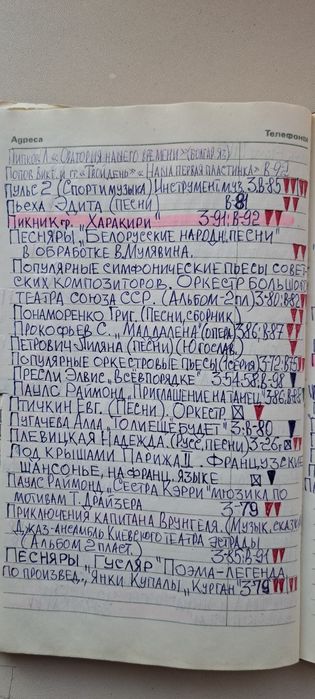 Адреса Телефоны
Пипков Л. „Оратория нашего времени" (болгар. яз)
Попов Викт. и гр. „Тройдень" „Наша первая пластинка" В-92
Пульс 2 (Спорт и музыка) Инструмент. муз. З.В-85
Пьеха Эдита (песни) В-81
Пикник гр. „Харакири" З-91; В-92
Песняры „Белорусские народн. песни"
в обработке В. Мулявина.
Популярные симфонические пьесы совет-
ских композиторов. Оркестр Большого
театра Союза ССР. (Альбом-2пл) З-80; В-82
Пономаренко Григ. (Песни, сборник)
Прокофьев С. „Маддалена" (опера) З-86; В-87
Петрович Лиляна (песни) (Югослав.)
Популярные оркестровые пьесы (1 серия) З-72; В-75
Пресли Элвис „Всё в порядке" З-54-58, В-98
Паулс Раймонд „Приглашение на танец" З-86, В-86
Птичкин Евг. (Песни). Оркестр
Пугачёва Алла „То ли ещё будет" З; В-80
Плевицкая Надежда. (Русс. песни) З-26г.
Под крышами Парижа II. Французские
шансонье, на франц. языке
Паулс Раймонд „Сестра Кэрри" мюзикл по
мотивам Т. Драйзера З-79
Приключения капитана Врунгеля. (Музык. сказка
Джаз-ансамбль Киевского театра эстрады
(Альбом 2 пласт.) З-85; В-91
Песняры „Гусляр" Поэма-легенда
по произвед. „Янки Купалы „Курган" З-79